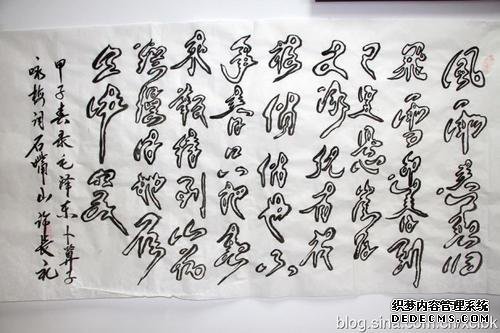 風雨送春归
飛雪迎春到
已是悬崖百
丈冰犹有花
枝俏俏也不
争春只把春
来報待到山花
烂漫时她在
丛中笑
甲子春录毛泽东卜算子
咏梅词石嘴山许长礼
blog.sina.com.cn
织梦内容管理系统
DEDECMS.COM